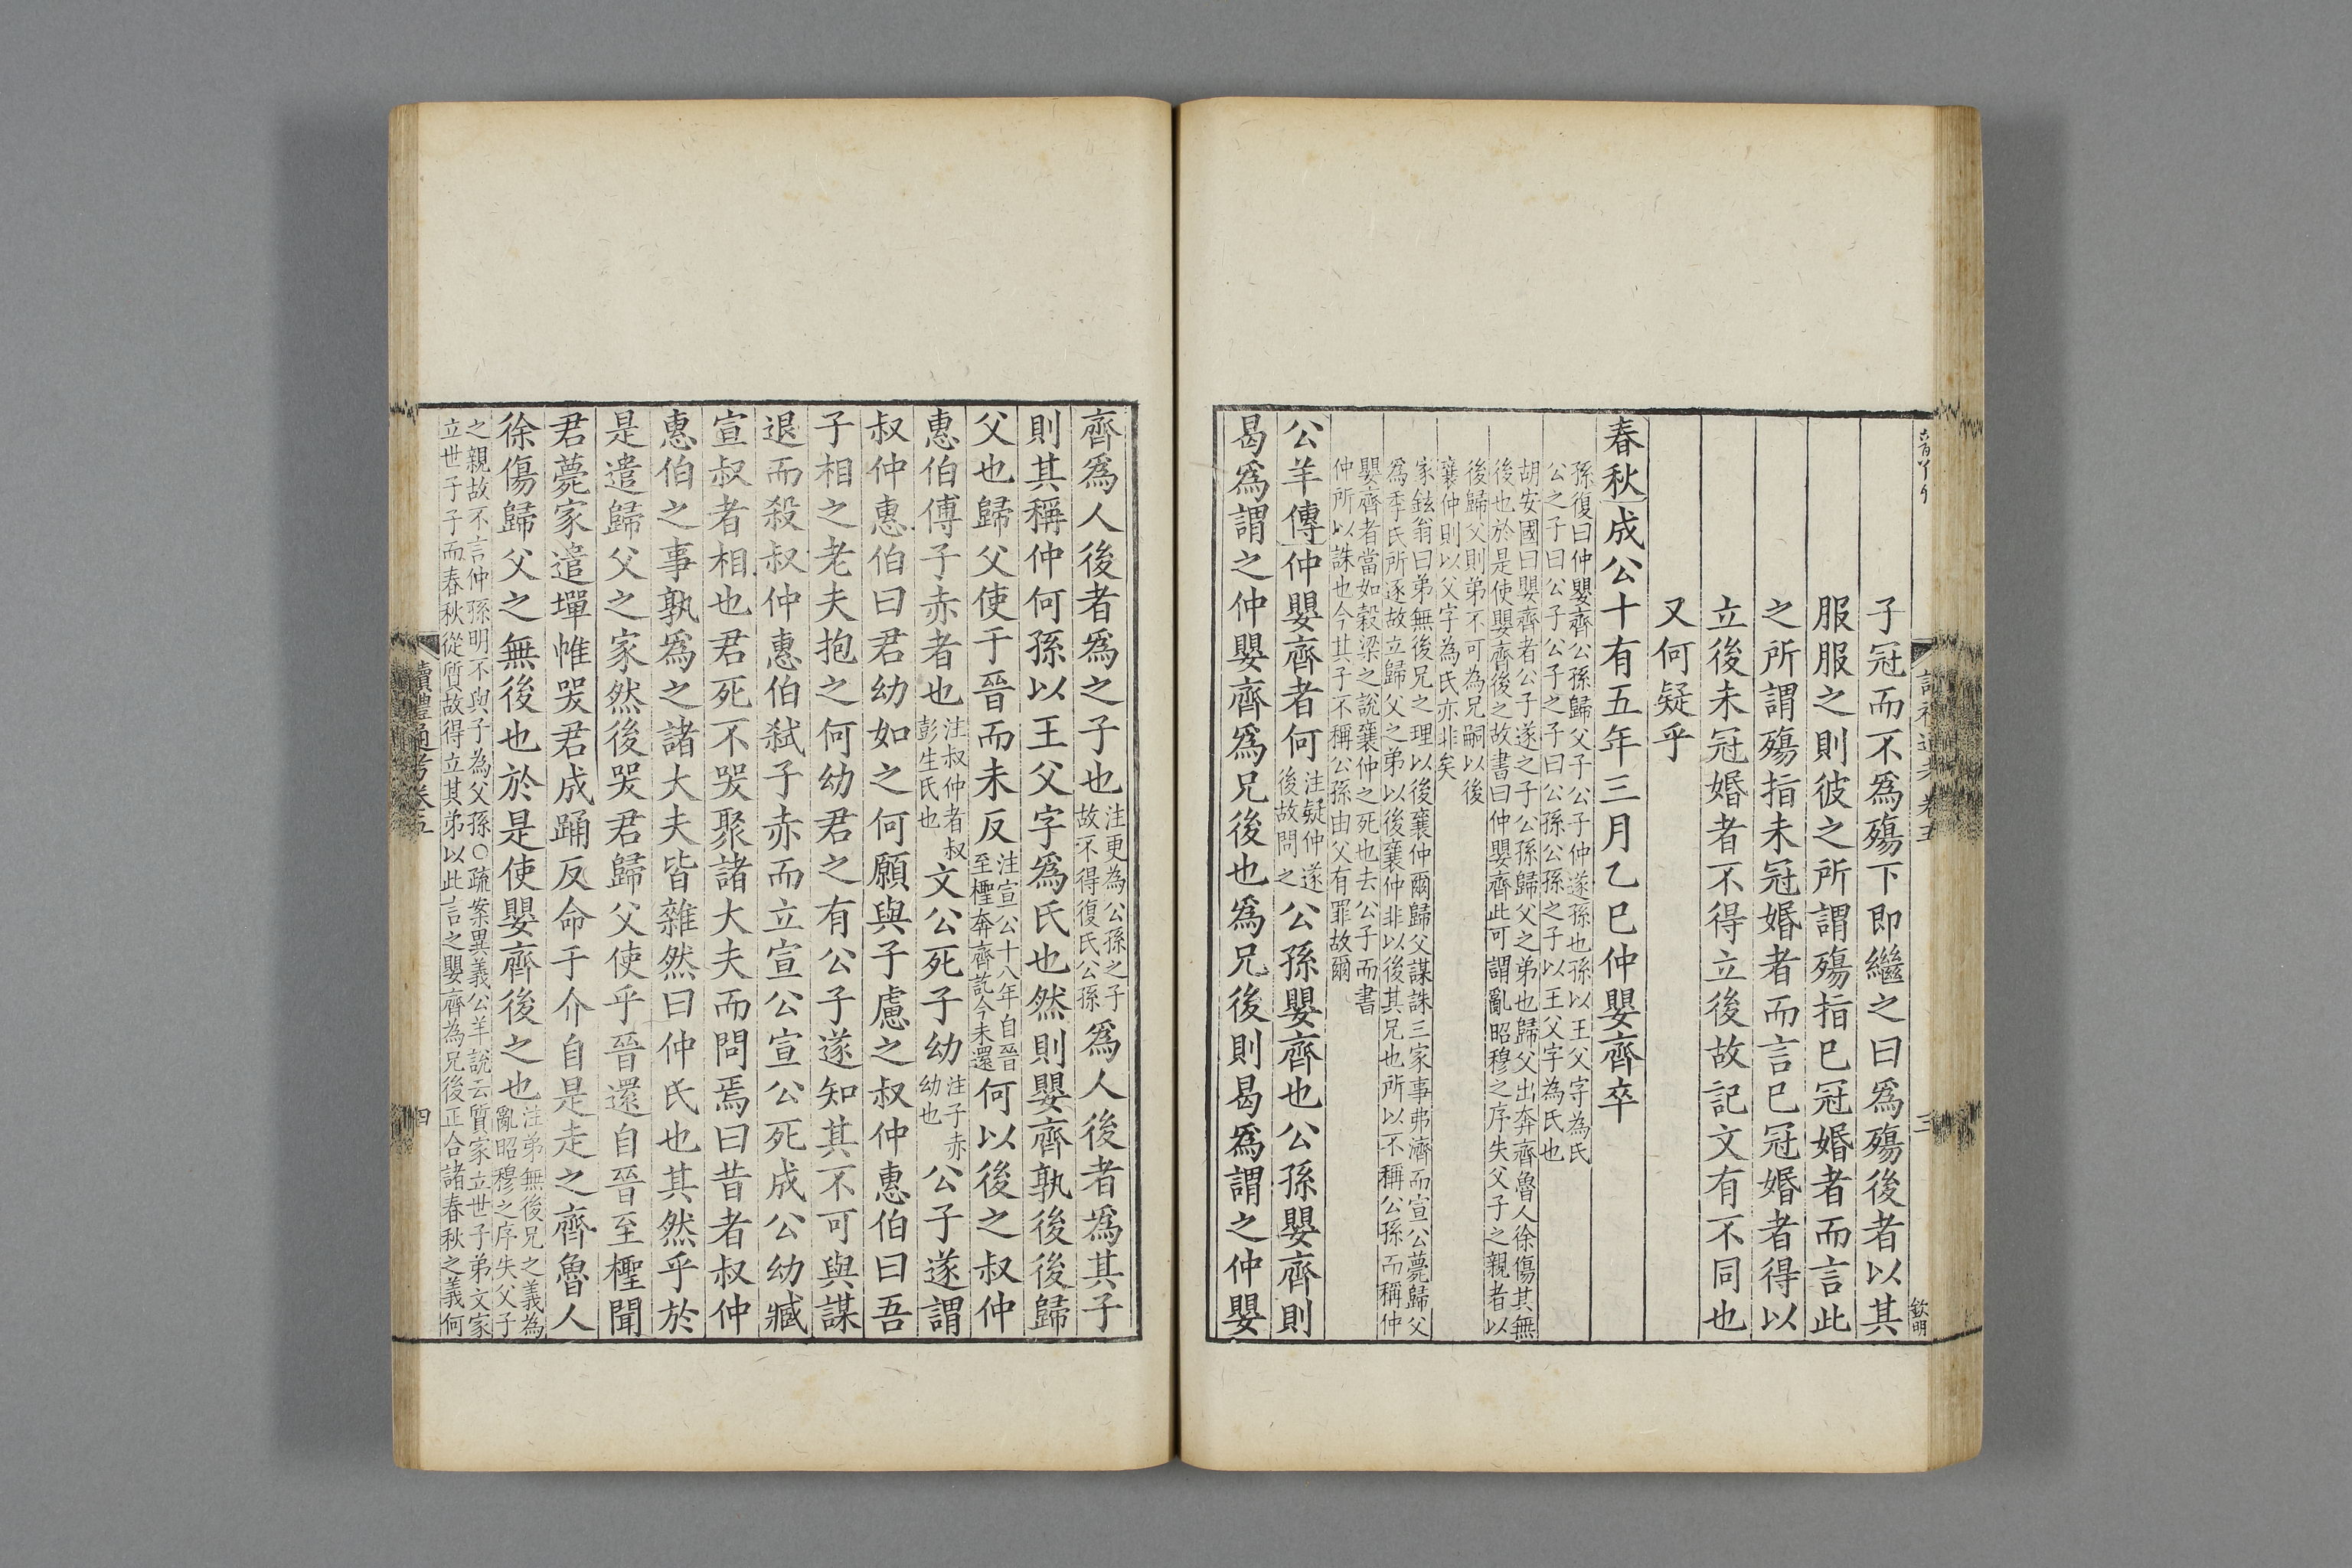 子冠而不爲殤下即繼之曰爲殤後者以其
服服之則彼之所謂殤指巳冠婚者而言此
之所謂殤指未冠婚者而言巳冠婚者得以
立後未冠婚者不得立後故記文有不同也
又何疑乎
春秋成公十有五年三月乙巳仲嬰齊卒
孫復曰仲嬰齊公孫歸父子公子仲遂孫也孫以王父字為氏
公之子曰公子公子之子曰公孫公孫之子以王父字為氏也
胡安國曰嬰齊者公子遂之子公孫歸父之弟也歸父出奔齊魯人徐傷其無
後也於是使嬰齊後之故書曰仲嬰齊此可謂亂昭穆之序失父子之親者以
後歸父則弟不可為兄嗣以後
襄仲則以父字為氏亦非矣
家鉉翁曰弟無後兄之理以後襄仲爾歸父謀誅三家事弗濟而宣公薨歸父
為季氏所逐故立歸父之弟以後襄仲非以後其兄也所以不稱公孫而稱仲
嬰齊者當如榖梁之說襄仲之死也去公子而書
仲所以誅也今其子不稱公孫由父有罪故爾
公羊傳仲嬰齊者何注疑仲遂後故問之公孫嬰齊也公孫嬰齊則
曷爲謂之仲嬰齊爲兄後也爲兄後則曷爲謂之仲嬰
齊爲人後者爲之子也注更為公孫之子故不得復氏公孫爲人後者爲其子
則其稱仲何孫以王父字爲氏也然則嬰齊孰後後歸
父也歸父使于晉而未反注宣公十八年自晉至檉奔齊訖今未還何以後之叔仲
惠伯傅子赤者也注叔仲者叔彭生氏也文公死子幼注子赤幼也公子遂謂
叔仲惠伯曰君幼如之何願與子慮之叔仲惠伯曰吾
子相之老夫抱之何幼君之有公子遂知其不可與謀
退而殺叔仲惠伯弑子赤而立宣公宣公死成公幼臧
宣叔者相也君死不哭聚諸大夫而問焉曰昔者叔仲
惠伯之事孰爲之諸大夫皆雜然曰仲氏也其然乎於
是遣歸父之家然後哭君歸父使乎晉還自晉至檉聞
君薨家遣墠帷哭君成踊反命于介自是走之齊魯人
徐傷歸父之無後也於是使嬰齊後之也注弟無後兄之義為亂昭穆之序失父子
之親故不言仲孫明不與子為父孫○疏案異義公羊說云質家立世子弟文家
立世子子而春秋從質故得立其弟以此言之嬰齊為兄後正合諸春秋之義何
讀禮通考卷五
四